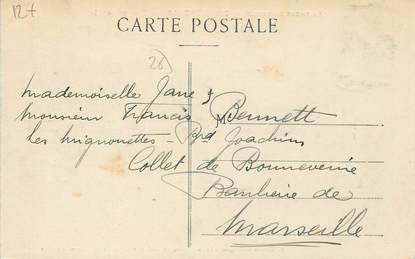 12+
CARTE POSTALE
(26)
Mademoiselle Jane &
Monsieur Francis Bennett
Les Mignonettes - Bd Joachim
Collet de Bonneveine
Banlieue de
Marseille